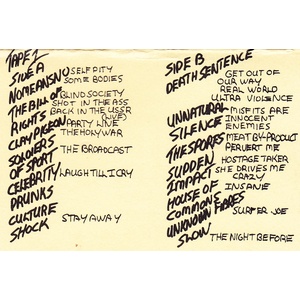 TAPE 1
SIDE A
NOMEANSNO SELF PITY
SOME BODIES
THE BILL OF RIGHTS BLIND SOCIETY
SHOT IN THE ASS
BACK IN THE USSR
(LIVE)
CLAY PIGEON PARTY LINE
THE HOLY WAR
SOLDIERS OF SPORT THE BROADCAST
CELEBRITY DRUNKS LAUGH TILL I CRY
CULTURE SHOCK STAY AWAY
SIDE B
DEATH SENTENCE GET OUT OF
OUR WAY
REAL WORLD
ULTRA VIOLENCE
UNNATURAL SILENCE MISFITS ARE
INNOCENT
ENEMIES
THE SPORES MEAT BY-PRODUCT
PERVERT ME
SUDDEN IMPACT HOSTAGE TAKER
SHE DRIVES ME
CRAZY
HOUSE OF COMMONS INSANE
UNKNOWN SURFER JOE
SLOW THE NIGHT BEFORE